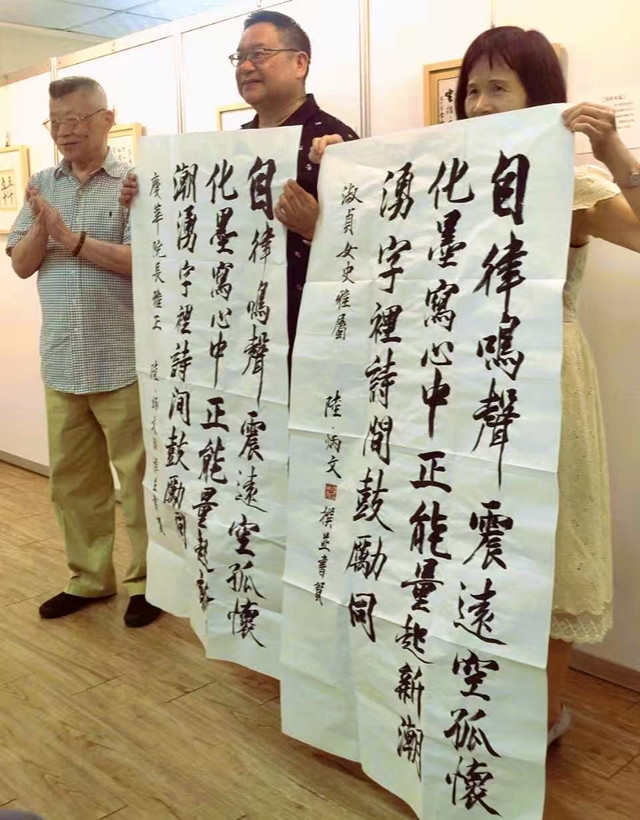 自律鳴聲震遠空孤懷
化墨寫心中正能量起新潮
湧字裡詩間鼓勵同
淑貞女史雅屬 陸炳文 撰並書賀
自律鳴聲震遠空孤懷
化墨寫心中正能量起新
潮湧字裡詩間鼓勵同
慶華院長雅正 陸炳文